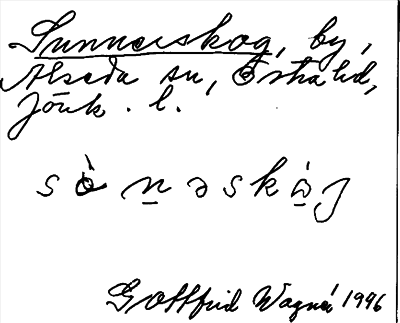 Sunnerskog, by,
Alseda sn, Östra hd,
Jönk. l.
s ò n̲ ə s k ὼ̲ ȷ
Gottfrid Wagnér 1996